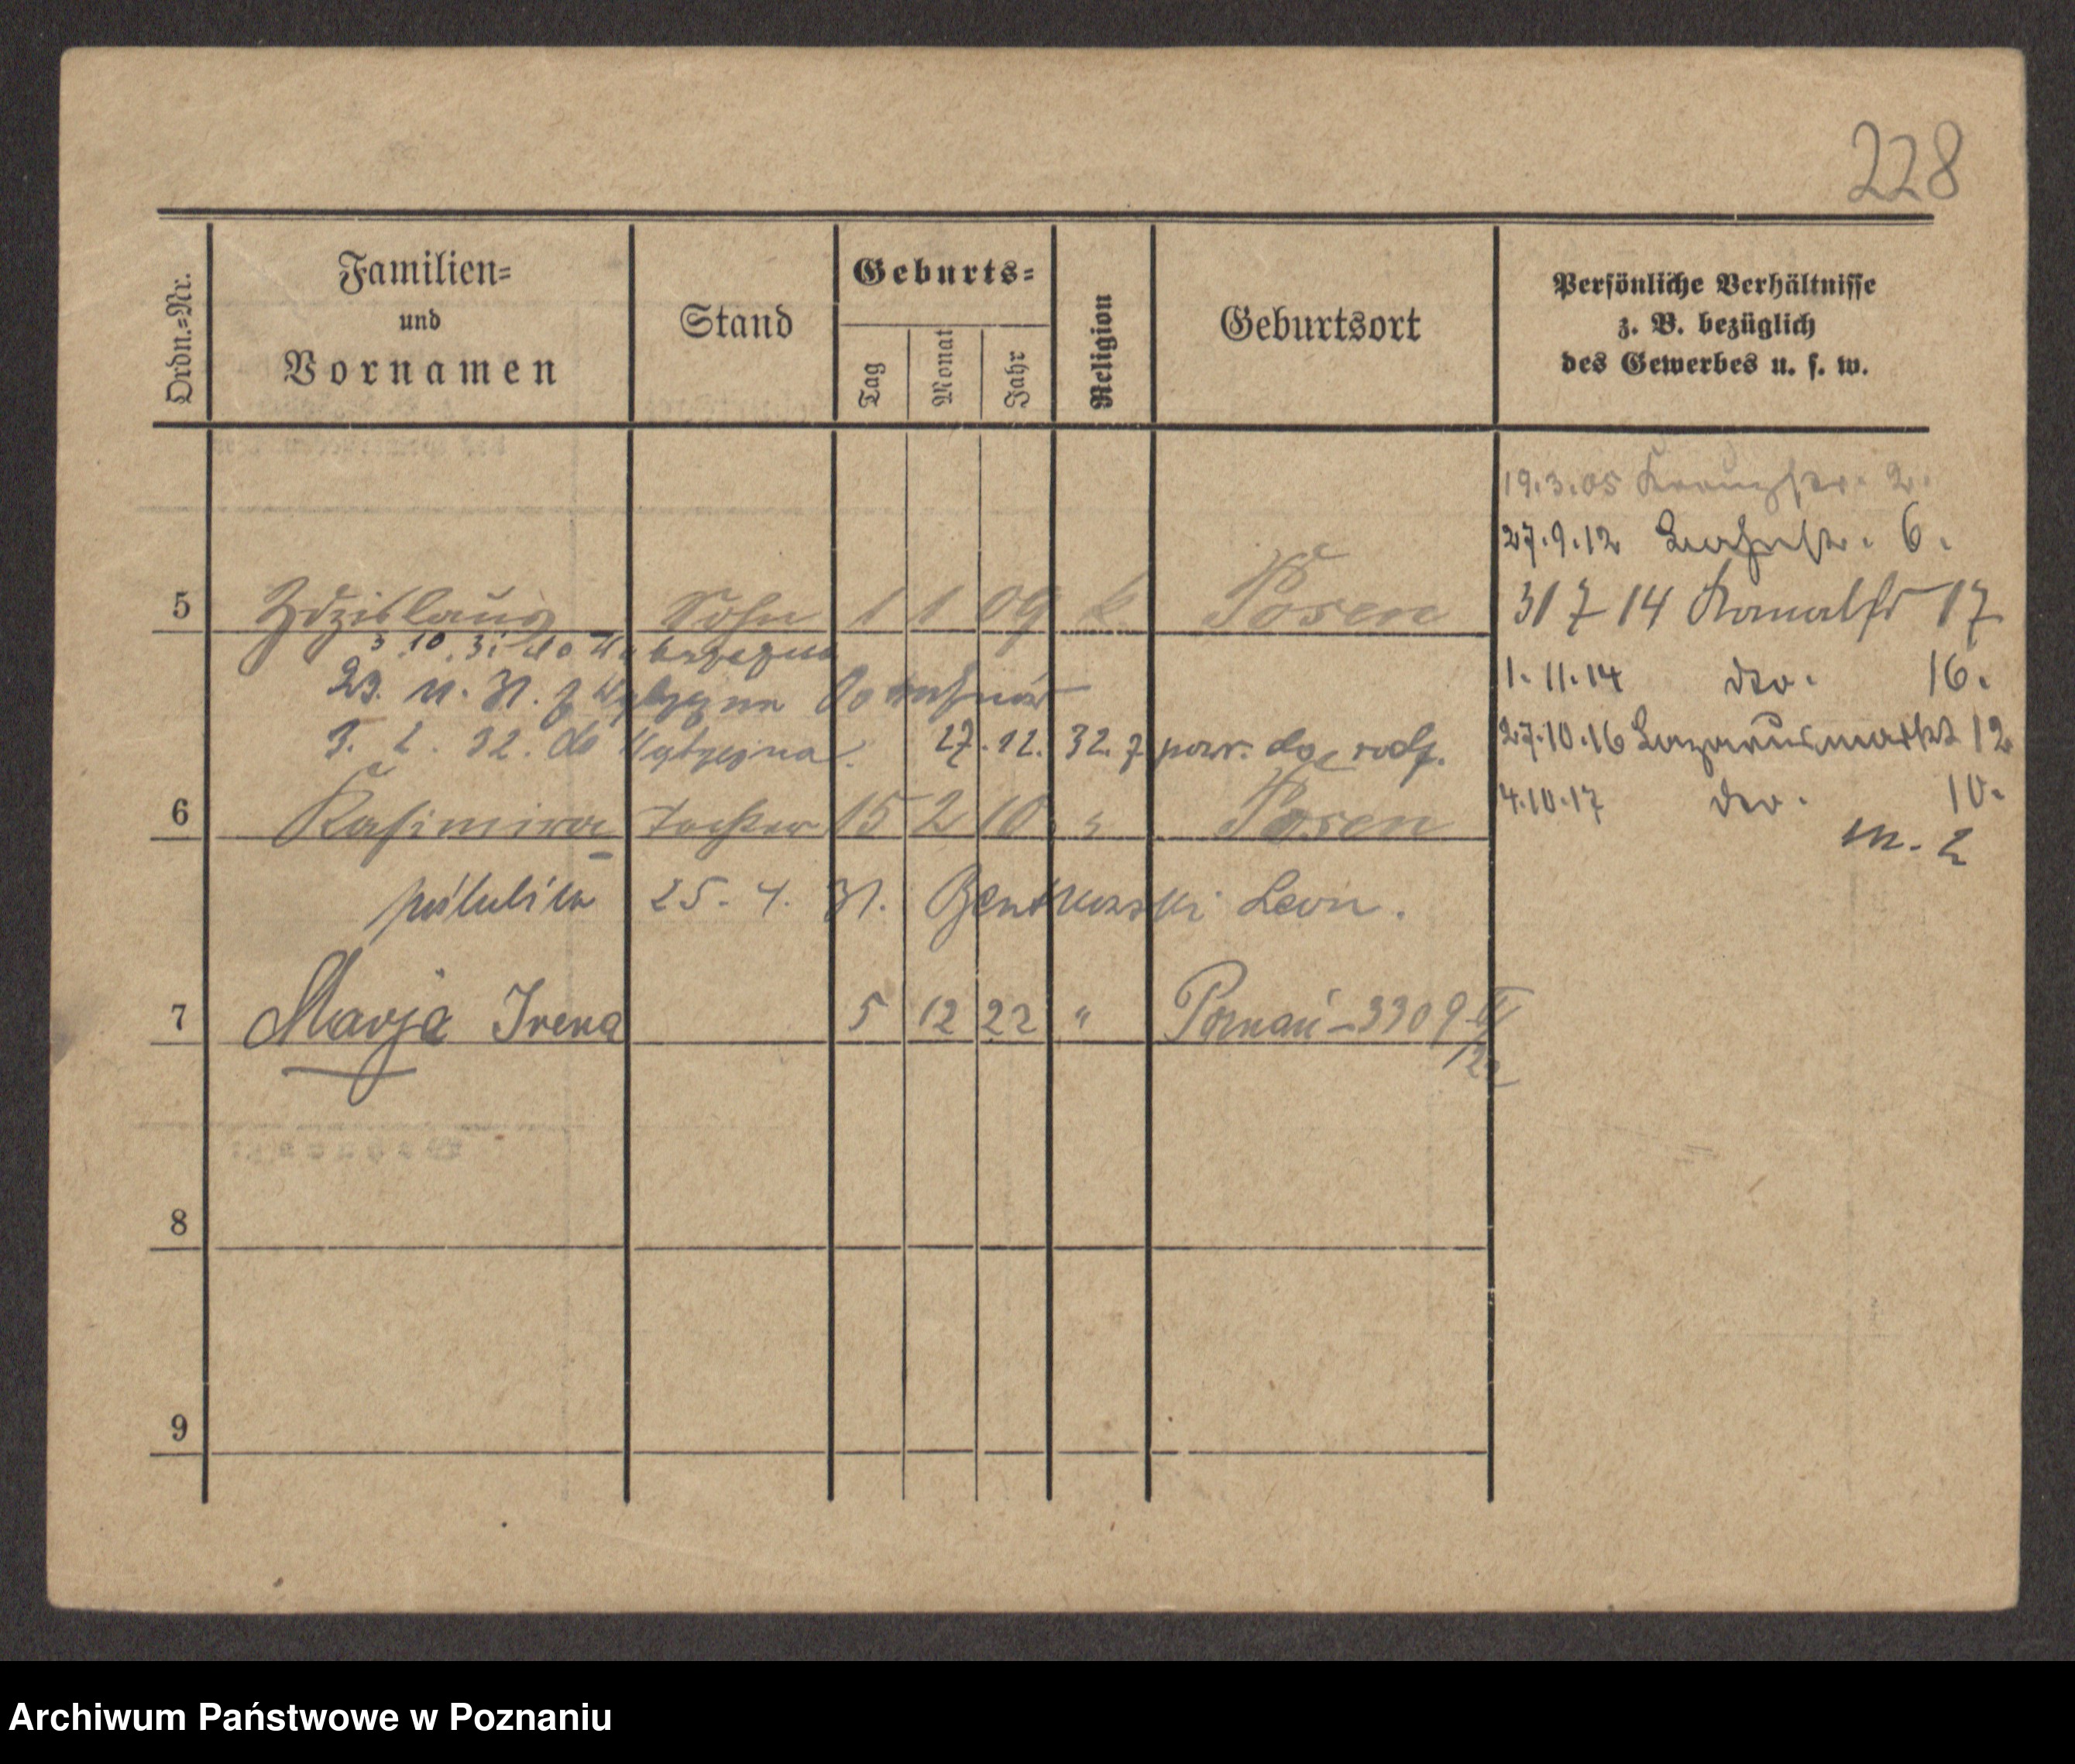 228
Ordn.=Nr.
Familien=
und
Vornamen
Stand
Geburts=
Tag
Monat
Jahr
Religion
Geburtsort
Persönliche Verhältnisse
z. B. bezüglich
des Gewerbes u. s. w.
19.3.05 2.
27.9.12 6.
5 Zdzislaus Sohn 1 1 09 k. Posen
31 7 14 Kanalstr 17
3 10 31 do
23. 11. 31. z
1.11.14 dto. 16.
3. 2. 32. do 27.12. 32. z pow. do rodz.
27.10.16 Lazarusmarkt 12
6 Kasimira Tochter 15 2 10 " Posen
4.10.17 dto. 10.
m. 2
poślubiła 25. 4. 31. Bentkowski Leon.
7 Marja Irena 5 12 22 " Poznań - 3309 VI/22
8
9
Archiwum Państwowe w Poznaniu